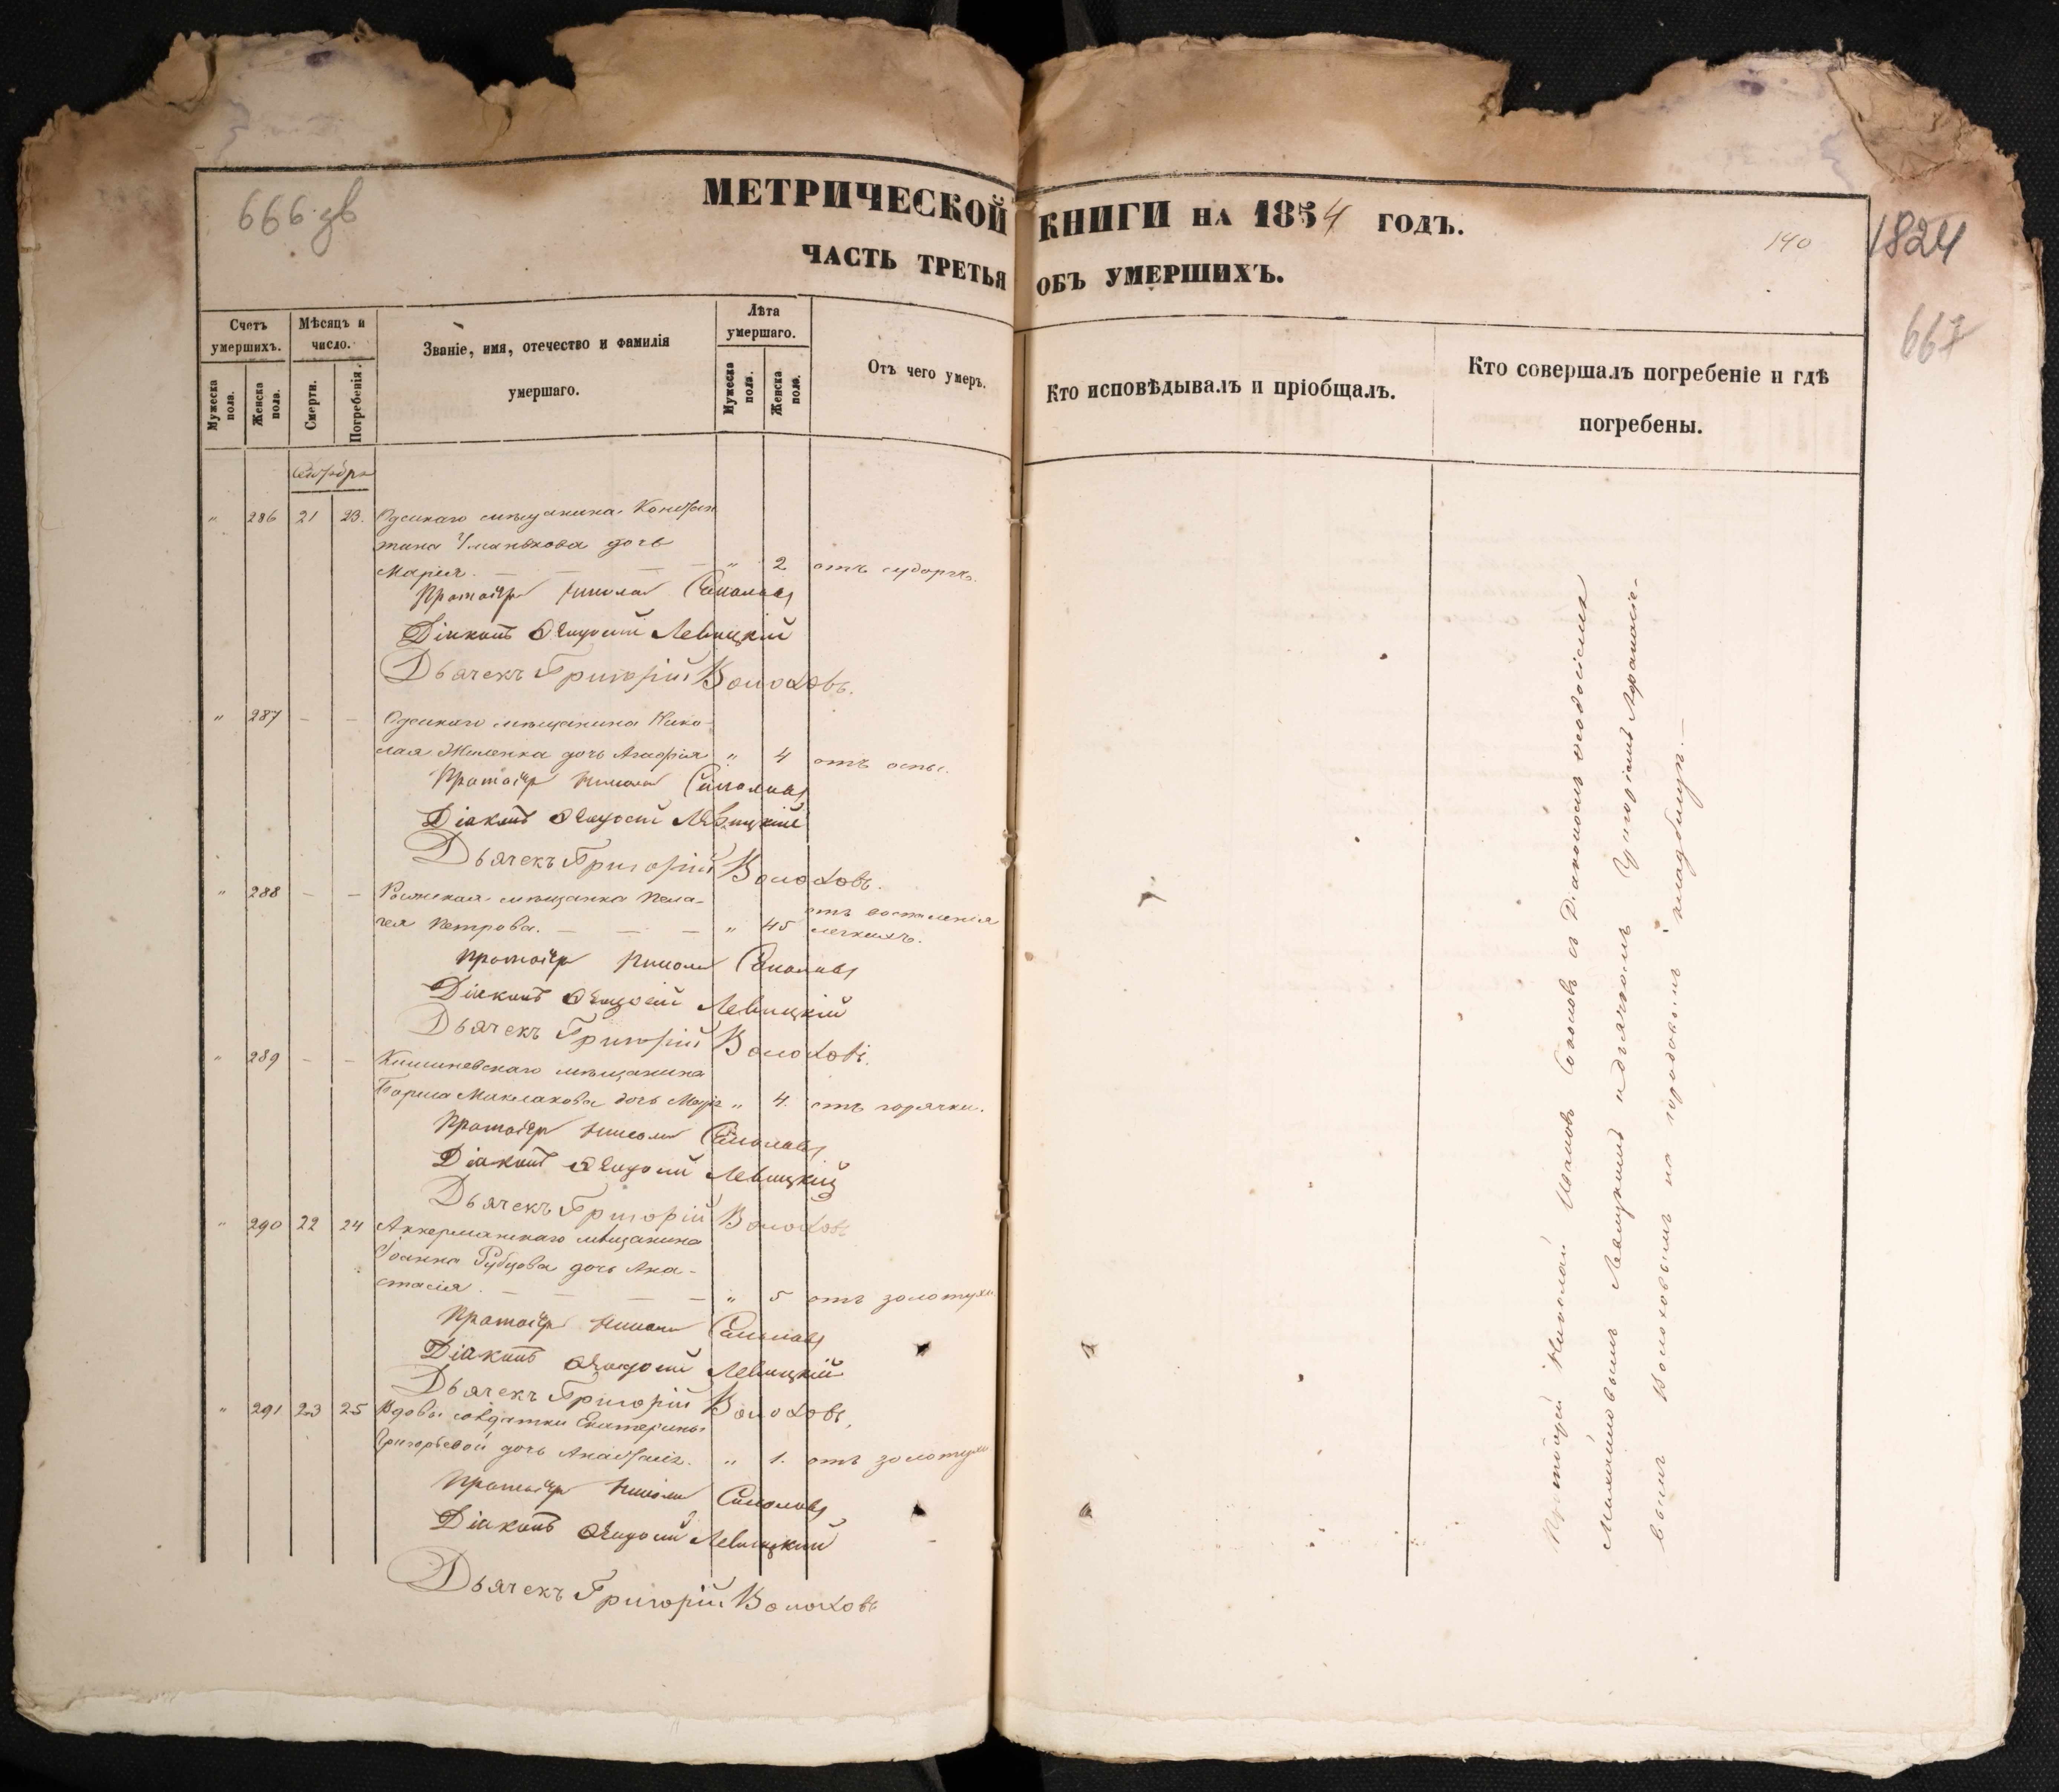 666 зв
МЕТРИЧЕСКОЙ КНИГИ НА 1854 ГОДЪ.
140
1824
ЧАСТЬ ТРЕТЬЯ ОБЪ УМЕРШИХЪ.
667
Счетъ умершихъ.
Мужеска пола.
Женска пола.
Мѣсяцъ и число.
Смерти.
Погребенія.
Званіе, имя, отечество и фамилія
умершаго.
Лѣта умершаго.
Мужеска пола.
Женска пола.
Отъ чего умеръ.
Кто исповѣдывалъ и пріобщалъ.
Кто совершалъ погребеніе и гдѣ
погребены.
" 286 21 23. Одескаго мѣщанина Констан
тина дочь
Марія. — — — — " 2 отъ судорогъ.
Протоіер Николай Соколовъ
Діаконъ Ѳеодосій Левицкій
Дьячекъ Григорій Волоховъ.
" 287 — — Одескаго мѣщанина Нико-
лая дочь Агафія " 4 отъ оспы.
Протоіер Николай Соколовъ
Діаконъ Ѳеодосій Левицкій
Дьячекъ Григорій Волоховъ.
" 288 — — мѣщанка Пела-
гея Петрова. — — — " 45 отъ воспаленія
легкихъ.
Протоіер Николай Соколовъ
Діаконъ Ѳеодосій Левицкій
Дьячекъ Григорій Волоховъ.
" 289 — — Кишиневскаго мѣщанина
Бориса Маклакова дочь Марія " 4. отъ горячки.
Протоіер Николай Соколовъ
Діаконъ Ѳеодосій Левицкій
Дьячекъ Григорій Волоховъ
" 290 22 24 Аккерманскаго мѣщанина
Іоанна Рубцова дочь Ана-
стасія. — — — — " 5 отъ золотухи
Протоіер Николай Соколовъ
Діаконъ Ѳеодосій Левицкій
Дьячекъ Григорій Волоховъ.
" 291 23 25 Вдовы солдатки Екатерины
Григорьевой дочь Анастасія. " 1. отъ золотухи
Протоіер Николай Соколовъ
Діаконъ Ѳеодосій Левицкій
Дьячекъ Григорій Волоховъ
Протоіерей Николай Іоановъ Соколовъ съ Діакономъ Ѳеодосіемъ
Михайловымъ Левицкимъ и дьячкомъ
Волоховымъ на городовомъ кладбищѣ. —